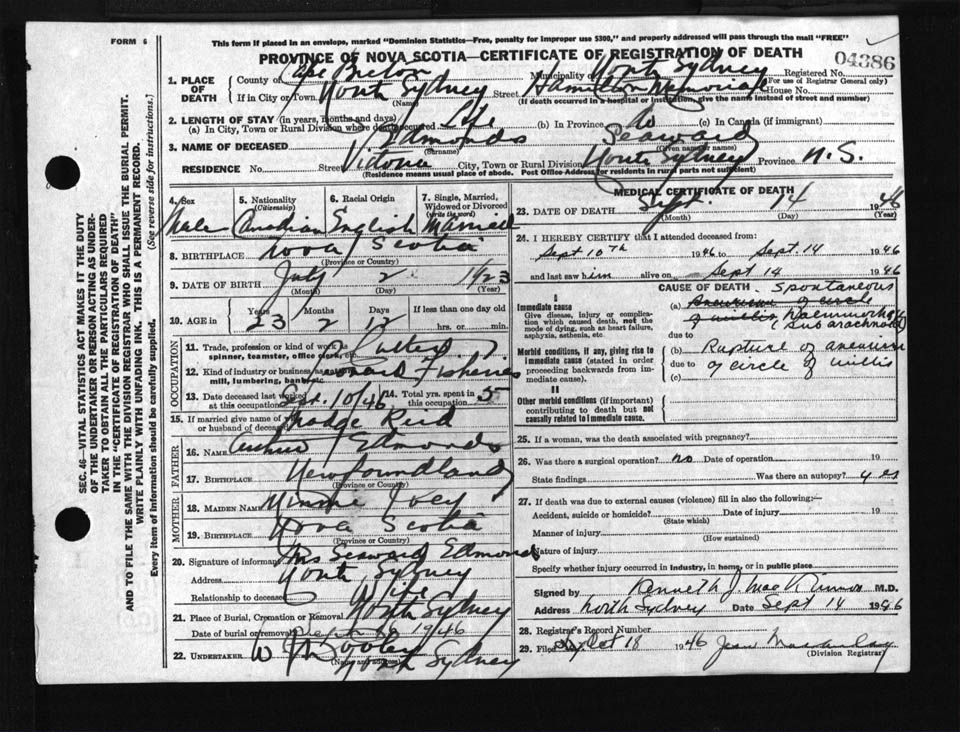 FORM 6
This form if placed in an envelope, marked "Dominion Statistics—Free, penalty for improper use $300," and properly addressed will pass through the mail "FREE"
PROVINCE OF NOVA SCOTIA—CERTIFICATE OF REGISTRATION OF DEATH
04386
SEC. 46—VITAL STATISTICS ACT MAKES IT THE DUTY
OF THE UNDERTAKER OR PERSON ACTING AS UNDER-
TAKER TO OBTAIN ALL THE PARTICULARS REQUIRED
IN THE "CERTIFICATE OF REGISTRATION OF DEATH"
AND TO FILE THE SAME WITH THE DIVISION REGISTRAR WHO SHALL ISSUE THE BURIAL PERMIT.
WRITE PLAINLY WITH UNFADING INK. THIS IS A PERMANENT RECORD.
Every item of information should be carefully supplied. (See reverse side for instructions.)
1. PLACE OF DEATH County of Cape Breton Municipality of North Sydney Registered No. (For use of Registrar General only)
If in City or Town North Sydney (Name) Street Hamilton Memorial House No.
(If death occurred in a hospital or institution, give the name instead of street and number)
2. LENGTH OF STAY (in years, months and days)
(a) In City, Town or Rural Division where death occurred Life (b) In Province do (c) In Canada (if immigrant)
3. NAME OF DECEASED Edmonds Seaward (Given name or names)
RESIDENCE No. Street Victoria City, Town or Rural Division North Sydney Province N.S.
(Residence means usual place of abode. Post Office Address for residents in rural parts not sufficient)
4. Sex Male
5. Nationality (Citizenship) Canadian
6. Racial Origin English
7. Single, Married, Widowed or Divorced (write the word) Married
8. BIRTHPLACE Nova Scotia
(Province or Country)
9. DATE OF BIRTH July 2 1923
(Month) (Day) (Year)
10. AGE in Years 23 Months 2 Days 12 If less than one day old hrs. or min.
OCCUPATION
11. Trade, profession or kind of work as spinner, teamster, office clerk, etc. Cutter
12. Kind of industry or business, as mill, lumbering, bank, etc. Fisheries
13. Date deceased last worked at this occupation Sept. 10/46 14. Total yrs. spent in this occupation 5
15. If married give name of wife or husband of deceased Madge Reid
FATHER
16. NAME Arthur Edmonds
17. BIRTHPLACE Newfoundland
(Province or Country)
MOTHER
18. MAIDEN NAME Minnie
19. BIRTHPLACE Nova Scotia
(Province or Country)
20. Signature of informant Mrs Seaward Edmonds
Address North Sydney
Relationship to deceased Wife
21. Place of Burial, Cremation or Removal North Sydney
Date of burial or removal 1946
22. UNDERTAKER North Sydney
(Name and address)
MEDICAL CERTIFICATE OF DEATH
23. DATE OF DEATH Sept. 14 1946
(Month) (Day) (Year)
24. I HEREBY CERTIFY that I attended deceased from:
Sept 10th 1946 to Sept. 14 1946
and last saw him alive on Sept 14 1946
CAUSE OF DEATH
I
Immediate cause
Give disease, injury or complication which caused death, not the mode of dying, such as heart failure, asphyxia, asthenia, etc.
(a) Spontaneous
Aneurism of circle
of willis haemorrhage
(subarachnoid)
due to
Morbid conditions, if any, giving rise to immediate cause (stated in order proceeding backwards from immediate cause).
(b) Rupture of aneurism
due to of circle of willis
(c)
II
Other morbid conditions (if important) contributing to death but not causally related to immediate cause.
25. If a woman, was the death associated with pregnancy?
26. Was there a surgical operation? no Date of operation 19
State findings Was there an autopsy? yes
27. If death was due to external causes (violence) fill in also the following:—
Accident, suicide or homicide? Date of injury 19
(State which)
Manner of injury
(How sustained)
Nature of injury
Specify whether injury occurred in industry, in home, or in public place
Signed by Kenneth J. MacKinnon M.D.
Address North Sydney Date Sept 14 1946
28. Registrar's Record Number
29. Filed Sept 18 1946 Jean
(Division Registrar)